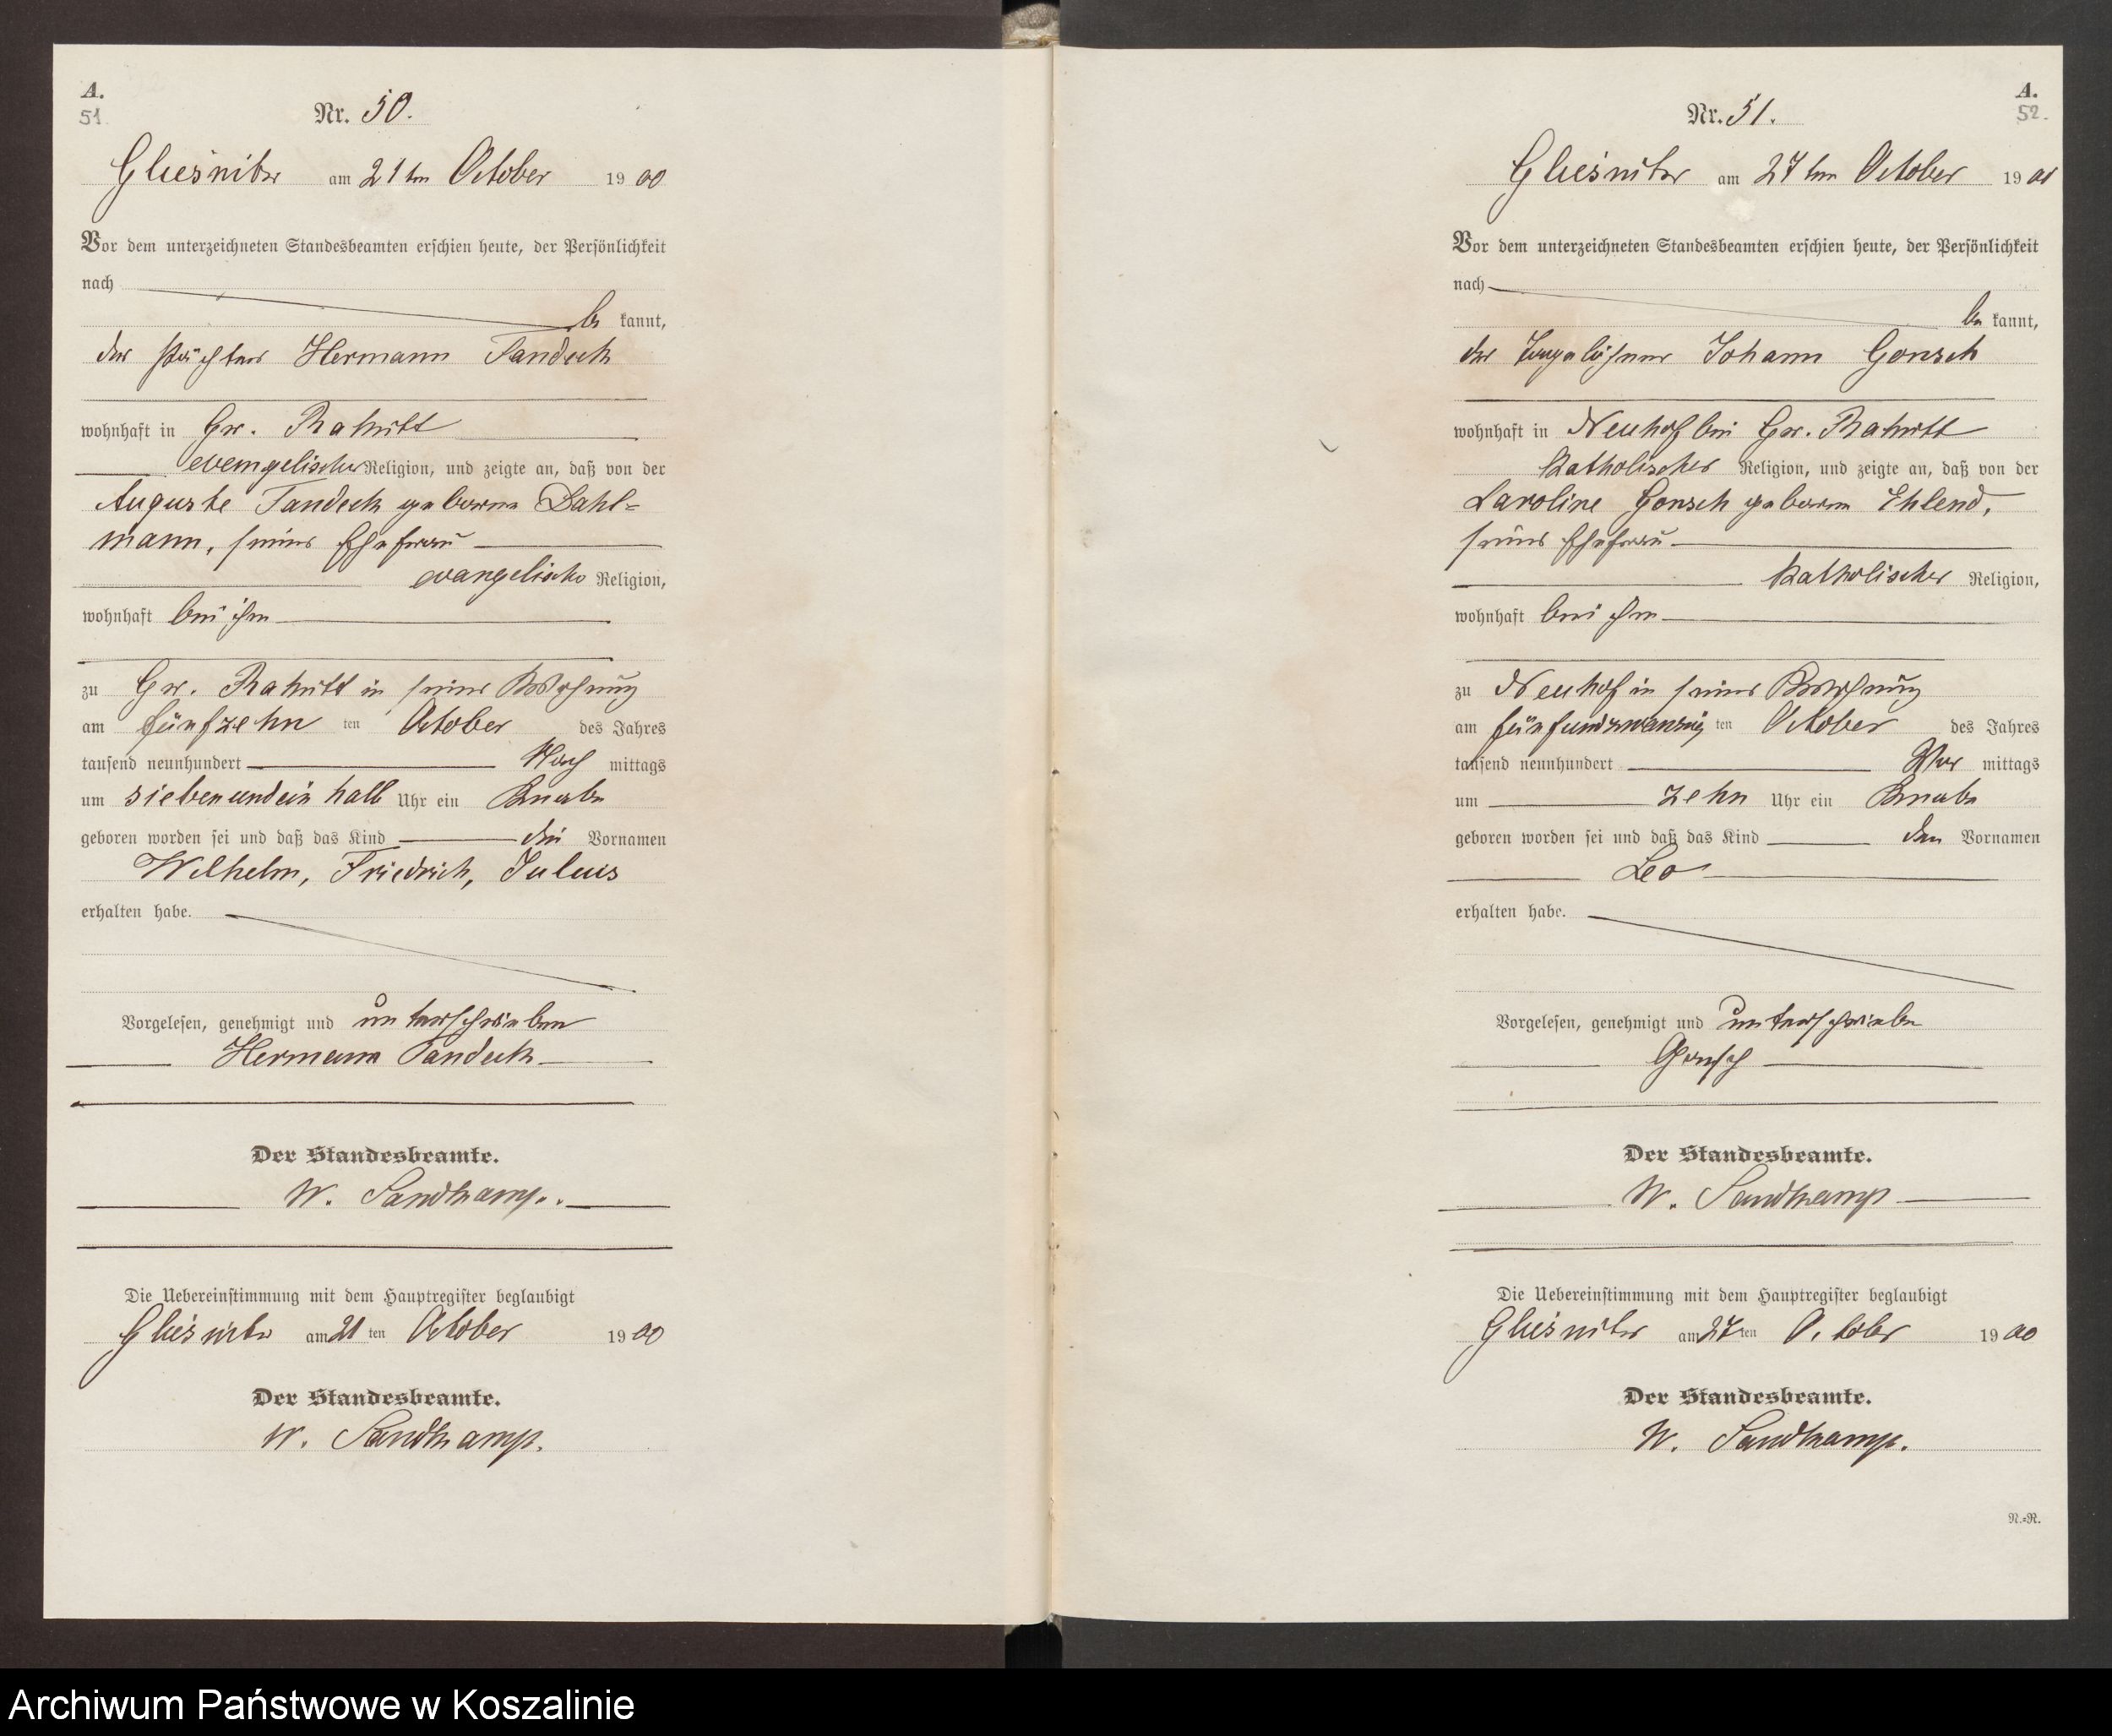 A.
51
Nr. 50.
Gliesnitz am 21ten October 1900
Vor dem unterzeichneten Standesbeamten erschien heute, der Persönlichkeit
nach
be kannt,
der Pächter Hermann Tandeck
wohnhaft in Gr. Rakitt
evangelischer Religion, und zeigte an, daß von der
Auguste Tandeck geborene Dahl=
mann, seiner Ehefrau
evangelischer Religion,
wohnhaft bei ihm
zu Gr. Rakitt in seiner Wohnung
am fünfzehn ten October des Jahres
tausend neunhundert Nach mittags
um siebenundein halb Uhr ein Knabe
geboren worden sei und daß das Kind die Vornamen
Wilhelm, Friedrich, Julius
erhalten habe.
Vorgelesen, genehmigt und unterschrieben
Hermann Tandeck
Der Standesbeamte.
W. Sandkamp.
Die Uebereinstimmung mit dem Hauptregister beglaubigt
Gliesnitz am 21 ten October 1900
Der Standesbeamte.
W. Sandkamp.
A.
52.
Nr. 51.
Gliesnitz am 27ten October 1900
Vor dem unterzeichneten Standesbeamten erschien heute, der Persönlichkeit
nach
be kannt,
der Tagelöhner Johann Gonsch
wohnhaft in Neuhof bei Gr. Rakitt
katholischer Religion, und zeigte an, daß von der
Caroline Gonsch geborene Ehlend,
seiner Ehefrau
katholischer Religion,
wohnhaft bei ihm
zu Neuhof in seiner Wohnung
am fünfundzwanzig ten October des Jahres
tausend neunhundert Vor mittags
um zehn Uhr ein Knabe
geboren worden sei und daß das Kind den Vornamen
Leo
erhalten habe.
Vorgelesen, genehmigt und unterschrieben
Gonsch
Der Standesbeamte.
W. Sandkamp
Die Uebereinstimmung mit dem Hauptregister beglaubigt
Gliesnitz am 27 ten October 1900
Der Standesbeamte.
W. Sandkamp.
N.=R.
Archiwum Państwowe w Koszalinie